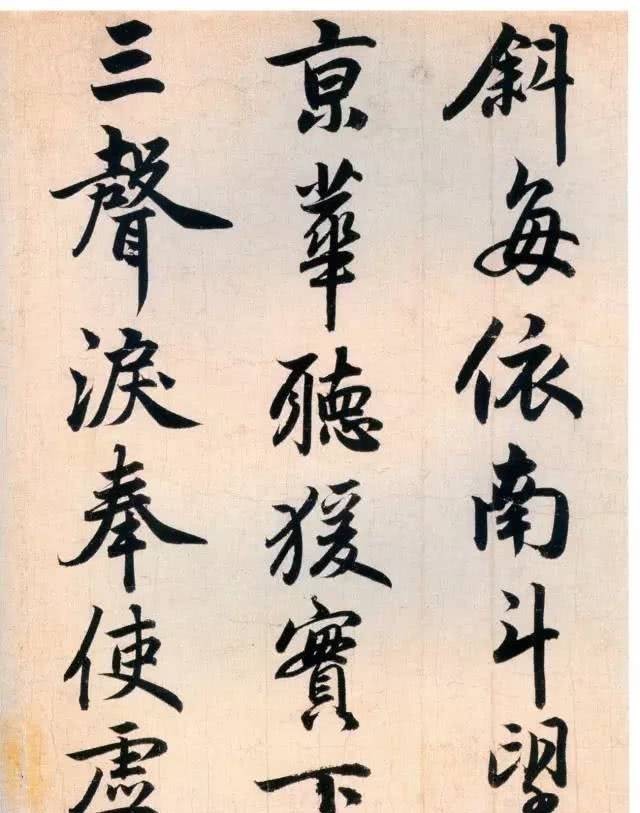 斜每依南斗望
京華聽猨實下
三聲淚奉使虛